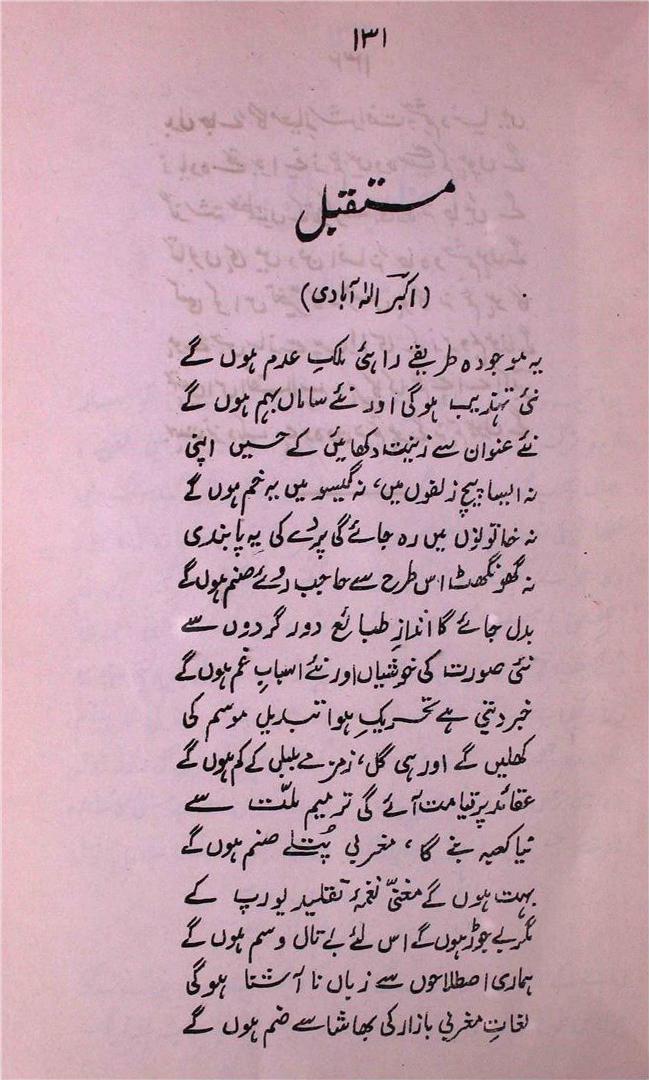 ۱۳۱
مستقبل
(اکبر الہ آبادی)
یہ موجودہ طریقے راہئی ملکِ عدم ہوں گے
نئی تہذیب ہوگی اور نئے ساماں بہم ہوں گے
نئے عنوان سے زینت دکھائیں گے حسیں اپنی
نہ ایسا پیچ زلفوں میں، نہ گیسو میں یہ خم ہوں گے
نہ خاتونوں میں رہ جائے گی پردے کی یہ پابندی
نہ گھونگھٹ اس طرح سے حاجب روئے صنم ہوں گے
بدل جائے گا اندازِ طبائع دور گردوں سے
نئی صورت کی خوشیاں اور نئے اسبابِ غم ہوں گے
خبر دیتی ہے تحریکِ ہوا تبدیل موسم کی
کھلیں گے اور ہی گل، زمزمے بلبل کے کم ہوں گے
عقائد پر قیامت آئے گی ترمیم ملّت سے
نیا کعبہ بنے گا، مغربی پُتلے صنم ہوں گے
بہت ہوں گے مغنّی نغمۂ تقلید یورپ کے
مگر بے جوڑ ہوں گے اس لئے بے تال و سم ہوں گے
ہماری اصطلاحوں سے زباں ناآشنا ہوگی
لغات مغربی بازار کی بھاشا سے ضم ہوں گے